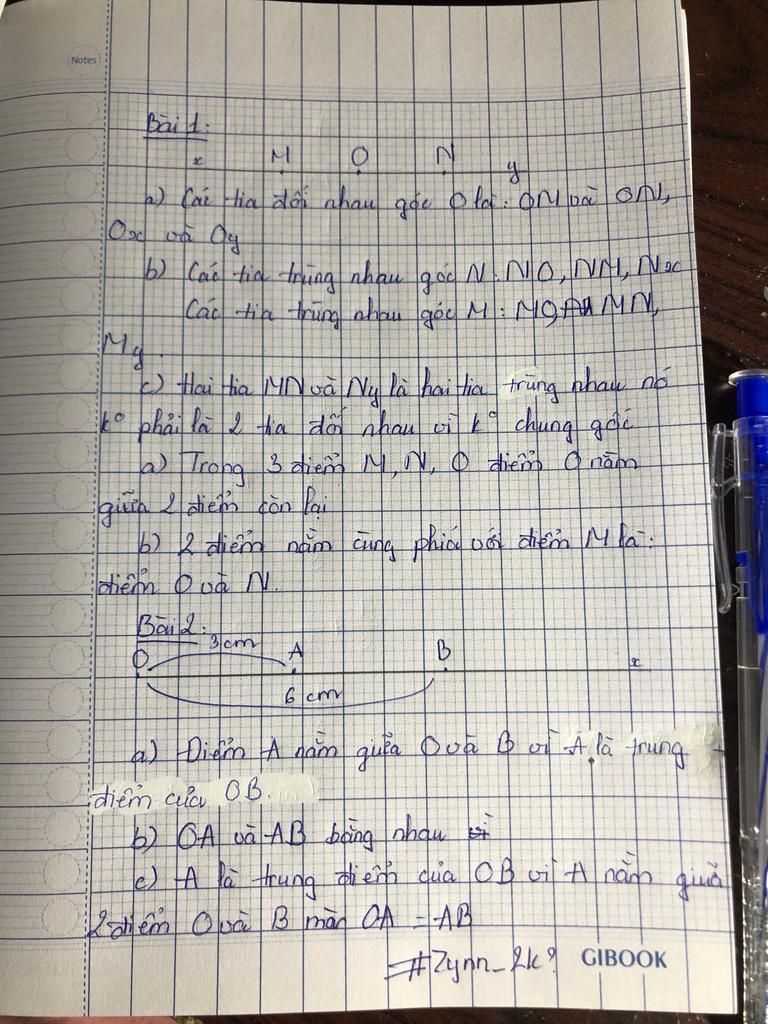 Notes
Bài 1:
x M O N y
a) Các tia đối nhau gốc O là: OM và ON,
Ox và Oy
b) Các tia trùng nhau gốc N: NO, NM, Nx
Các tia trùng nhau gốc M: MO, MN,
My.
c) Hai tia MN và Ny là hai tia trùng nhau nó
k° phải là 2 tia đối nhau vì k° chung gốc
a) Trong 3 điểm M, N, O điểm O nằm
giữa 2 điểm còn lại
b) 2 điểm nằm cùng phía với điểm M là:
điểm O và N.
Bài 2:
3 cm
O A B x
6 cm
a) Điểm A nằm giữa O và B vì A là trung
điểm của OB.
b) OA và AB bằng nhau
c) A là trung điểm của OB vì A nằm giữa
2 điểm O và B mà OA = AB
#Zynn_2k?
GIBOOK